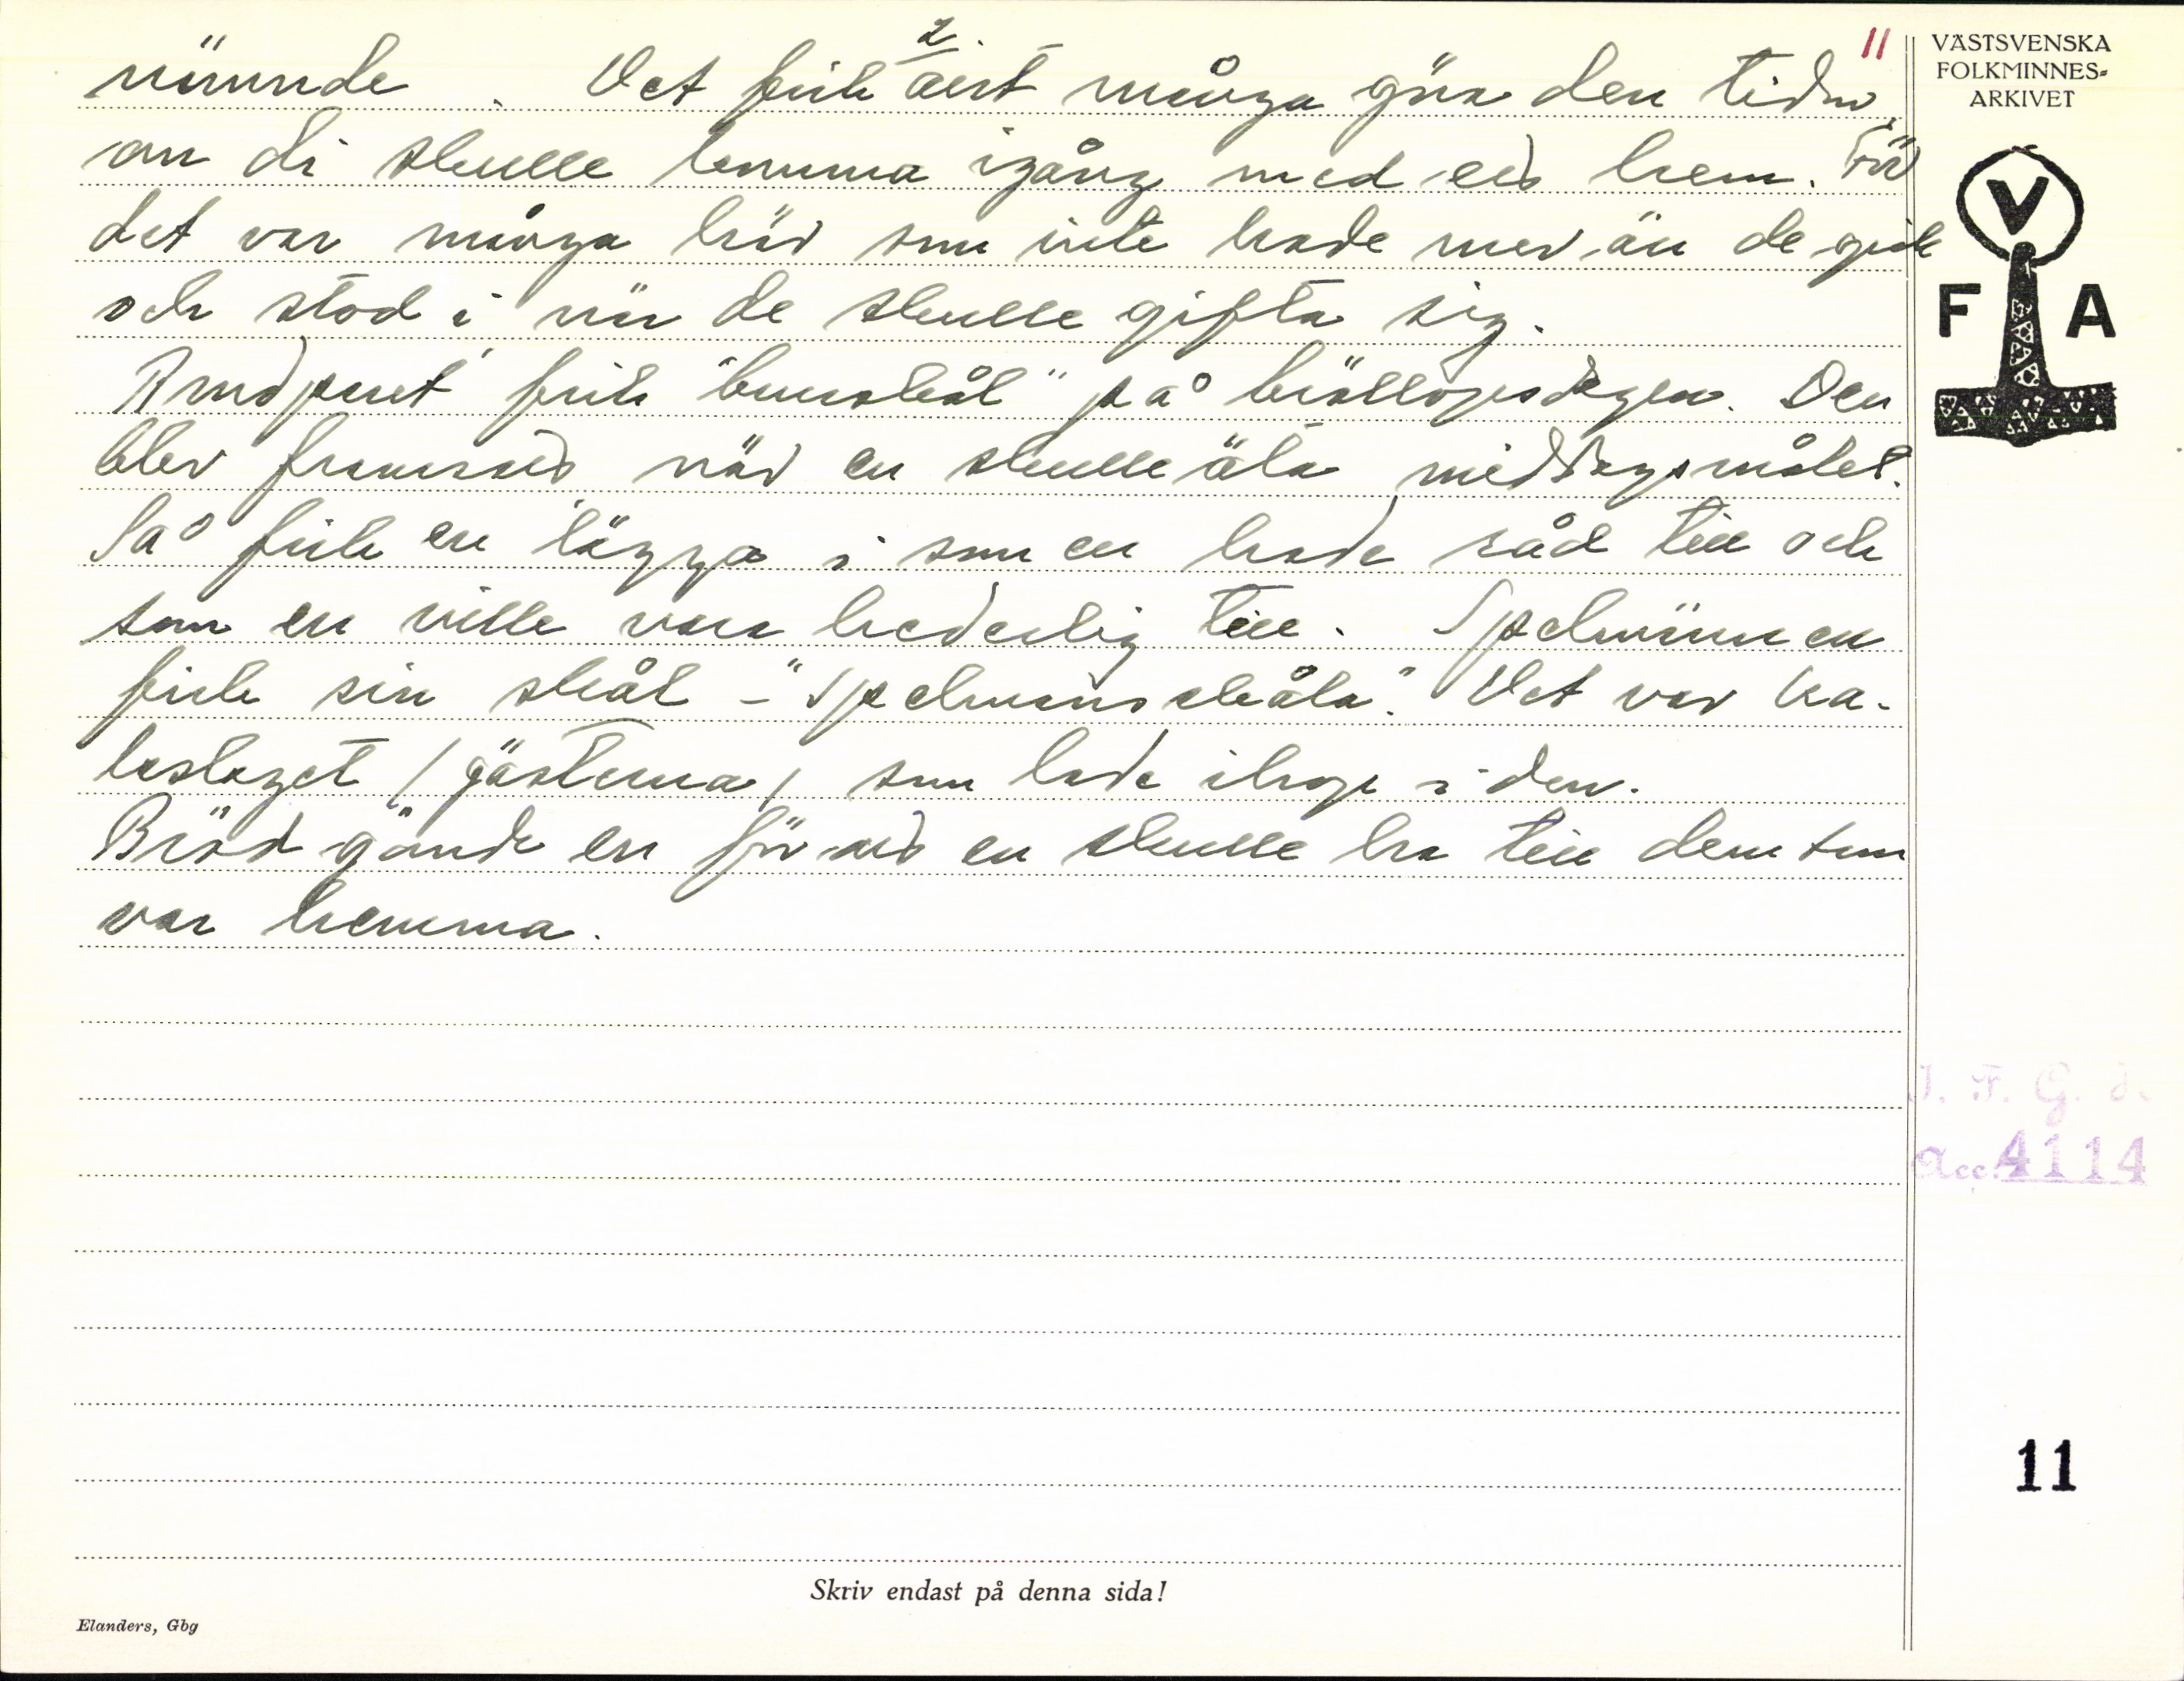 2.
11
VÄSTSVENSKA
FOLKMINNES-
ARKIVET
V
F A
Det fick många göra den tiden
om di skulle komma igång med ed hem. För
det var många här som inte hade mer än de gick
och stod i när de skulle gifta sig.
Brudparet fick "brurskål" på bröllopsdagen. Den
blev framsatt när en skulle äta middagsmålet.
Så fick en lägga i som en hade råd till och
som en ville vara hederlig till. Spelmännen
fick sin skål - "Spelmansskåla". Det var ka-
laslaget (gästerna) som lade ihop i den.
Bröd gömde en för att en skulle ha till dem som
var hemma.
I. F. G. H.
Acc. 4114
11
Skriv endast på denna sida!
Elanders, Gbg